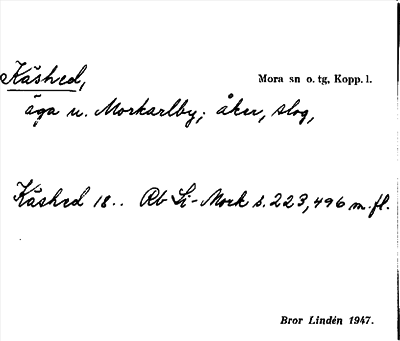 Kåshed, Mora sn o. tg, Kopp. l.
äga u. Morkarlby; åker, slog,
Kåshed 18.. Rb Li-Mork s. 223, 496 m.fl.
Bror Lindén 1947.